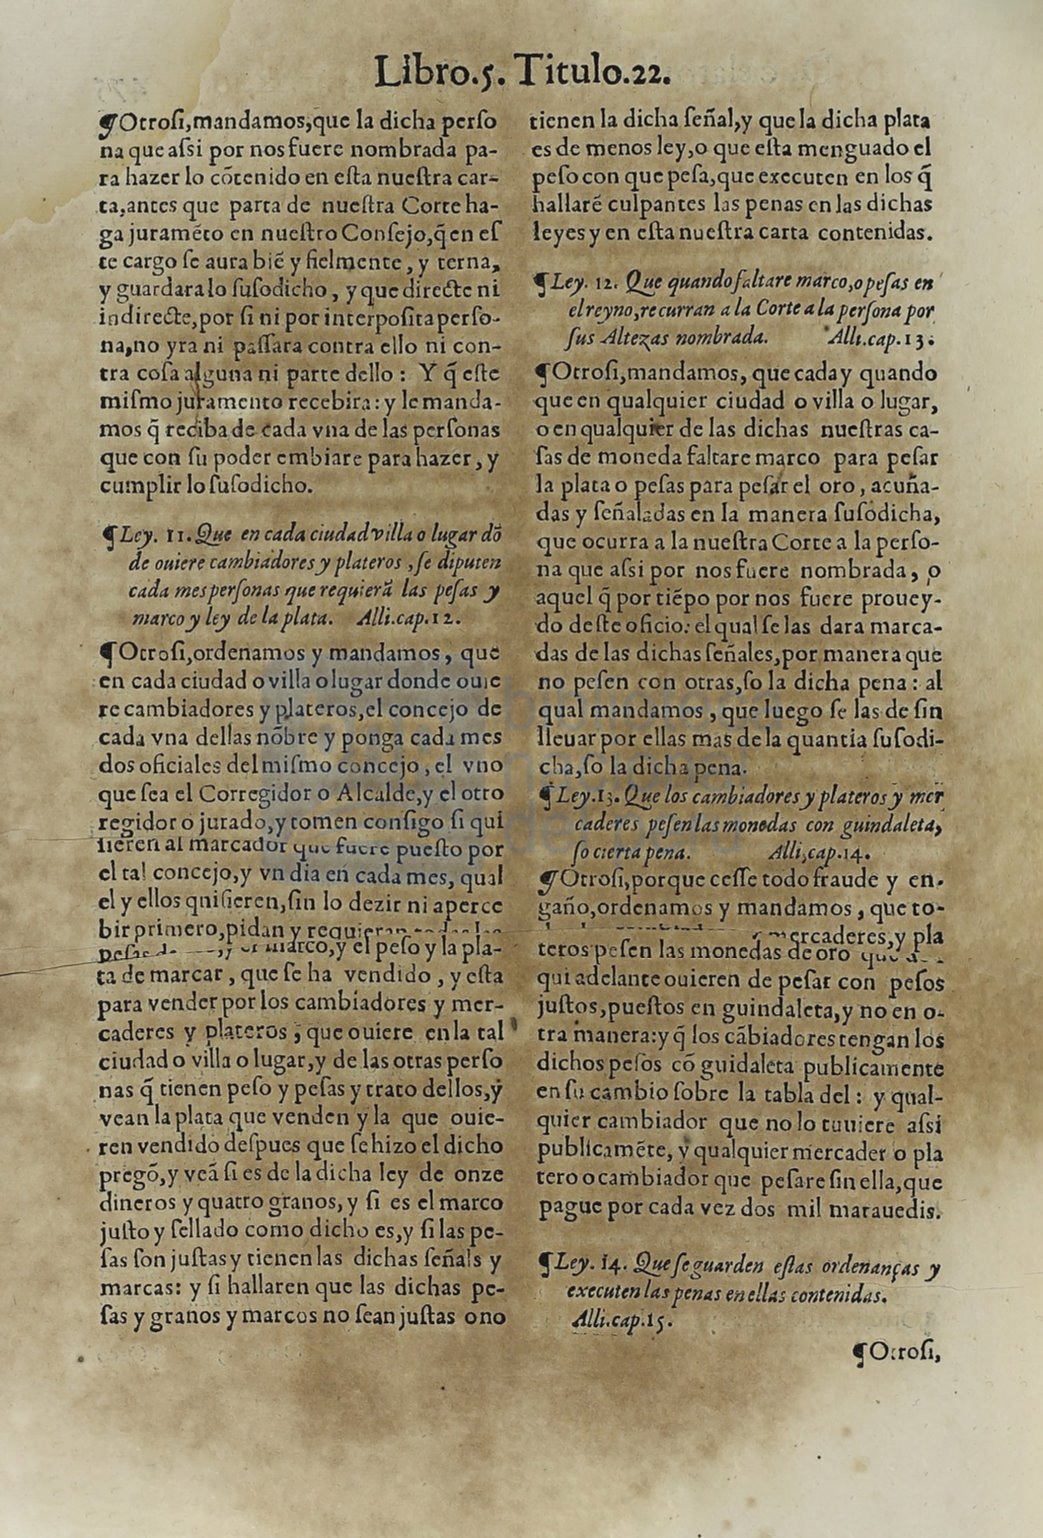 Libro.5. Titulo.22.
¶Otroſi,mandamos,que la dicha perſo
na que aſsi por nos fuere nombrada pa-
ra hazer lo cõtenido en eſta nueſtra car-
ta,antes que parta de nueſtra Corte ha-
ga juramẽto en nueſtro Conſejo,q̃ en eſ
te cargo ſe aura biẽ y fielmente, y terna,
y guardara lo ſuſodicho, y que directe ni
indirecte,por ſi ni por interpoſita perſo-
na,no yra ni paſſara contra ello ni con-
tra coſa alguna ni parte dello: Y q̃ eſte
miſmo juramento recebira: y le manda-
mos q̃ reciba de cada vna de las perſonas
que con ſu poder embiare para hazer, y
cumplir lo ſuſodicho.
¶Ley. 11. Que en cada ciudad villa o lugar dõ
de ouiere cambiadores y plateros, ſe diputen
cada mes perſonas que requierã las peſas y
marco y ley de la plata. Alli.cap.12.
¶Otroſi,ordenamos y mandamos, que
en cada ciudad o villa o lugar donde ouie
re cambiadores y plateros,el concejo de
cada vna dellas nõbre y ponga cada mes
dos oficiales del miſmo concejo, el vno
que ſea el Corregidor o Alcalde,y el otro
regidor o jurado,y tomen conſigo ſi qui
ſieren al marcador que fuere pueſto por
el tal concejo,y vn dia en cada mes, qual
el y ellos qniſieren,ſin lo dezir ni aperce
bir primero,pidan y requieran
marco,y el peſo y la pla-
ta de marcar, que ſe ha vendido, y eſta
para vender por los cambiadores y mer-
caderes y plateros, que ouiere en la tal
ciudad o villa o lugar,y de las otras perſo
nas q̃ tienen peſo y peſas y trato dellos,y
vean la plata que venden y la que ouie-
ren vendido deſpues que ſe hizo el dicho
pregõ,y veã ſi es de la dicha ley de onze
dineros y quatro granos, y ſi es el marco
juſto y ſellado como dicho es,y ſi las pe-
ſas ſon juſtas y tienen las dichas ſeñals y
marcas: y ſi hallaren que las dichas pe-
ſas y granos y marcos no ſean juſtas o no
tienen la dicha ſeñal,y que la dicha plata
es de menos ley,o que eſta menguado el
peſo con que peſa,que executen en los q̃
hallarẽ culpantes las penas en las dichas
leyes y en eſta nueſtra carta contenidas.
¶Ley. 12. Que quando faltare marco,o peſas en
el reyno,recurran a la Corte a la perſona por
ſus Altezas nombrada. Alli.cap.13.
¶Otroſi,mandamos, que cada y quando
que en qualquier ciudad o villa o lugar,
o en qualquier de las dichas nueſtras ca-
ſas de moneda faltare marco para peſar
la plata o peſas para peſar el oro, acuña-
das y ſeñaladas en la manera ſuſodicha,
que ocurra a la nueſtra Corte a la perſo-
na que aſsi por nos fuere nombrada, o
aquel q̃ por tiẽpo por nos fuere prouey-
do deſte oficio: el qual ſe las dara marca-
das de las dichas ſeñales,por manera que
no peſen con otras,ſo la dicha pena: al
qual mandamos, que luego ſe las de ſin
lleuar por ellas mas de la quantia ſuſodi-
cha,ſo la dicha pena.
¶Ley.13. Que los cambiadores y plateros y mer
caderes peſen las monedas con guindaleta,
ſo cierta pena. Alli,cap.14.
¶Otroſi,porque ceſſe todo fraude y en-
gaño,ordenamos y mandamos, que to-
mercaderes,y pla
teros peſen las monedas de oro que
qui adelante ouieren de peſar con peſos
juſtos,pueſtos en guindaleta,y no en o-
tra manera:y q̃ los cãbiadores tengan los
dichos peſos cõ guidaleta publicamente
en ſu cambio ſobre la tabla del: y qual-
quier cambiador que no lo tuuiere aſsi
publicamẽte, y qualquier mercader o pla
tero o cambiador que peſare ſin ella,que
pague por cada vez dos mil marauedis.
¶Ley. 14. Que ſe guarden eſtas ordenanças y
executen las penas en ellas contenidas.
Alli.cap.15.
¶Otroſi,